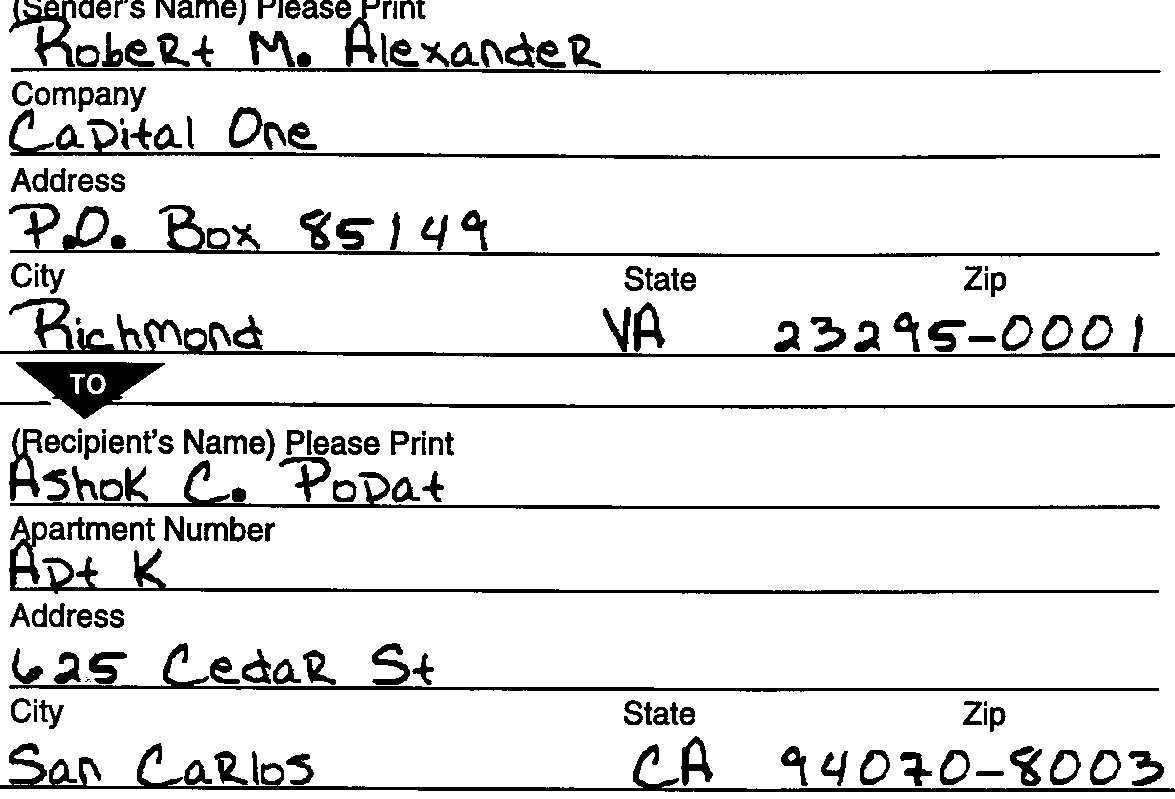 (Sender's Name) Please Print
Robert M. Alexander
Company
Capital One
Address
P.O. Box 85149
City State Zip
Richmond VA 23295-0001
TO
(Recipient's Name) Please Print
Ashok C. Popat
Apartment Number
Apt K
Address
625 Cedar St
City State Zip
San Carlos CA 94070-8003